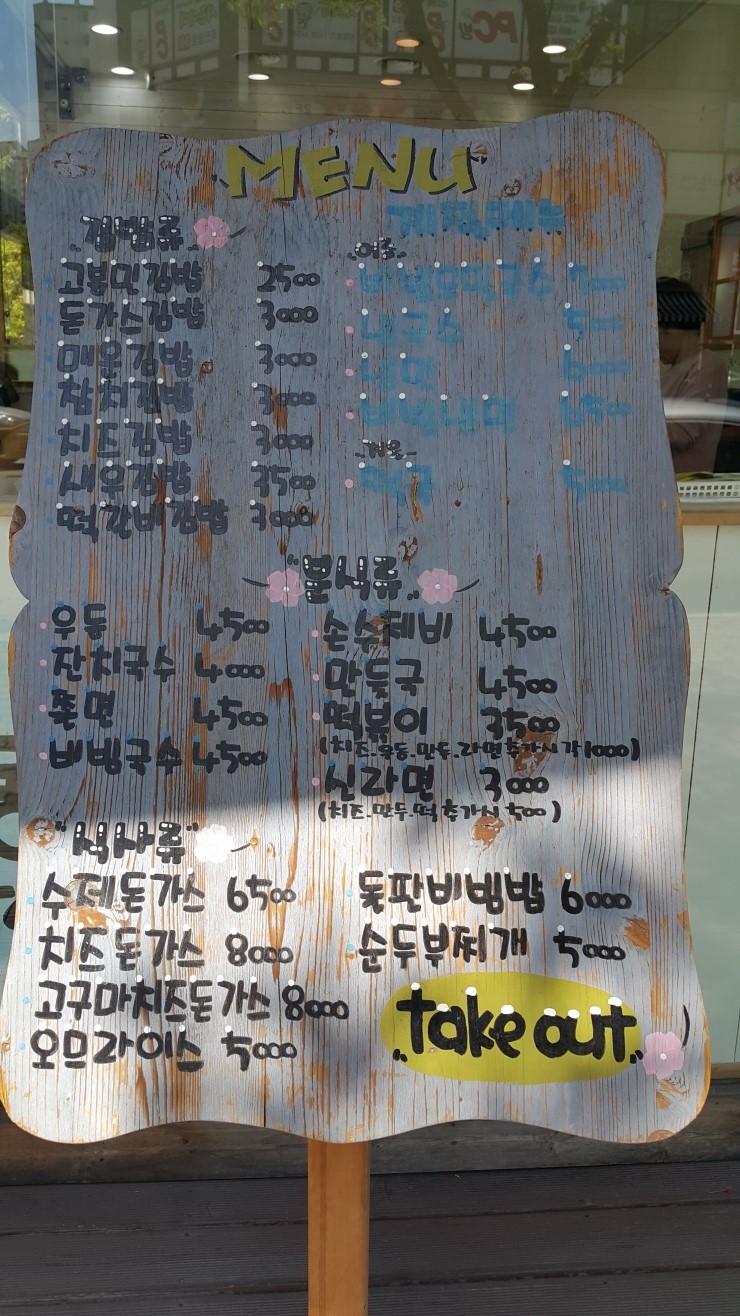 MENU
김밥류
고봉민김밥 2500
돈가스김밥 3000
매운김밥 3000
참치김밥 3000
치즈김밥 3000
새우김밥 3500
떡갈비김밥 3000
계절메뉴
-여름-
비빔모밀국수 7000
냉국수 5000
냉면 6000
비빔냉면 6500
-겨울-
떡국 5000
"분식류"
우동 4500
잔치국수 4000
쫄면 4500
비빔국수 4500
손수제비 4500
만둣국 4500
떡볶이 3500
(치즈.우동.만두.라면추가시각1000)
신라면 3000
(치즈.만두.떡추가시 500)
"식사류"
수제돈가스 6500
치즈돈가스 8000
고구마치즈돈가스 8000
오므라이스 5000
돌판비빔밥 6000
순두부찌개 5000
take out
PC